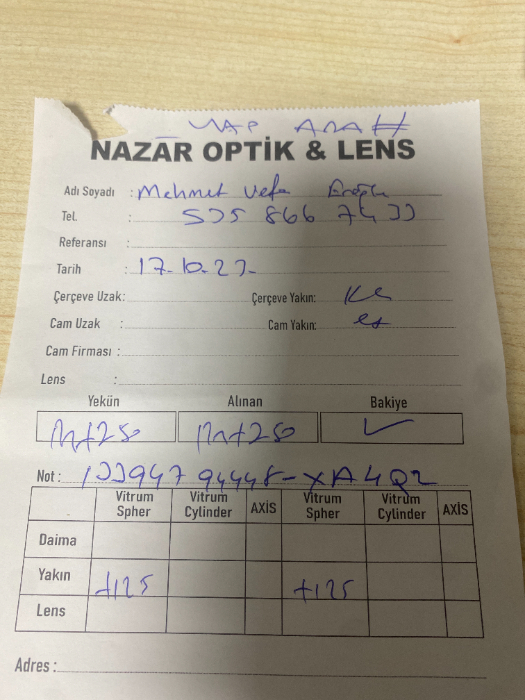 YAP ARAH
NAZAR OPTİK & LENS
Adı Soyadı : Mehmet Vefa
Tel. : 535 866 74 33
Referansı :
Tarih : 17.10.23.
Çerçeve Uzak: Çerçeve Yakın:
Cam Uzak : Cam Yakın:
Cam Firması :
Lens :
Yekün Alınan Bakiye
+250 +250 ✓
Not : 13394794448-XA4Q2
Vitrum Spher Vitrum Cylinder AXİS Vitrum Spher Vitrum Cylinder AXİS
Daima
Yakın +125 +125
Lens
Adres :